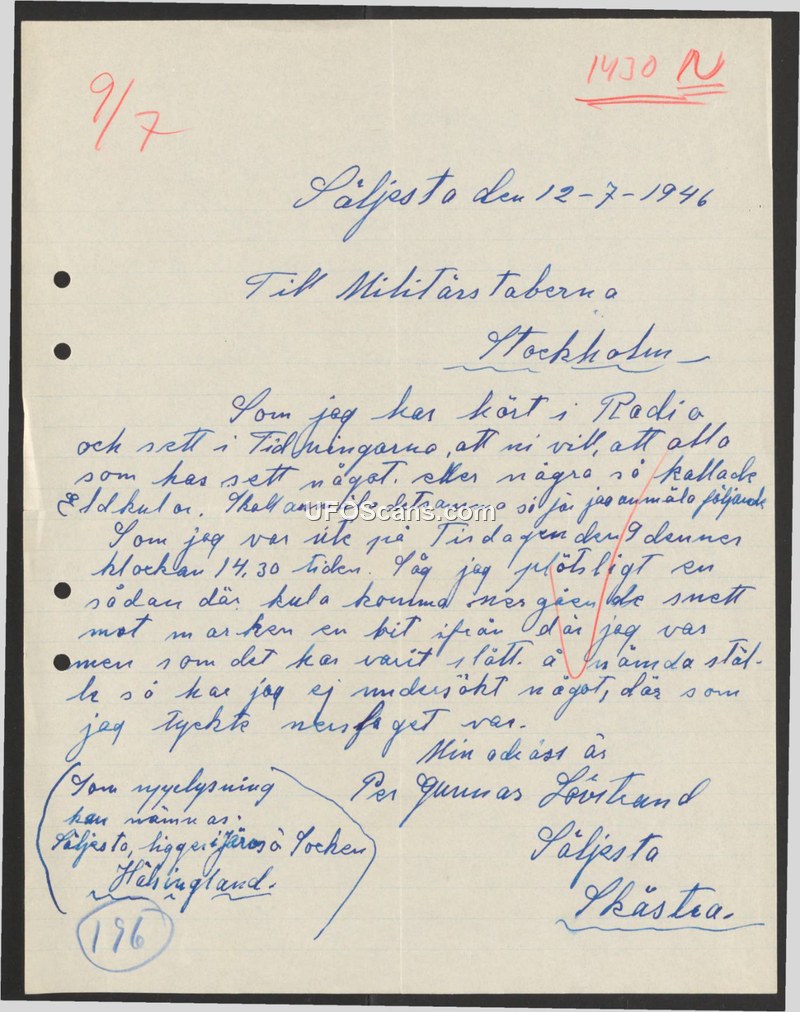 9/7
1430 N
Säljesta den 12-7-1946
Till Militärstaberna
Stockholm
Som jag har hört i Radio
och sett i Tidningarna, att ni vill, att alla
som har sett något. eller några så kallade
Eldkulor. Skall så får jag anmäla följande
UFOScans.com
Som jag var ute på Tisdagen den 9 dennes
klockan 14.30 tiden. Såg jag plötsligt en
sådan där kula komma nergående snett
mot marken en bit ifrån där jag var
men som det har varit slått. å nämda stäl-
le så har jag ej undersökt något, där som
jag tyckte var.
Min adräss är
Per Gunnar Lövstrand
Säljesta
Skästra.
(Som upplysning
kan nämnas.
Säljesta, ligger i Järvsö Socken
Hälsingland.)
196